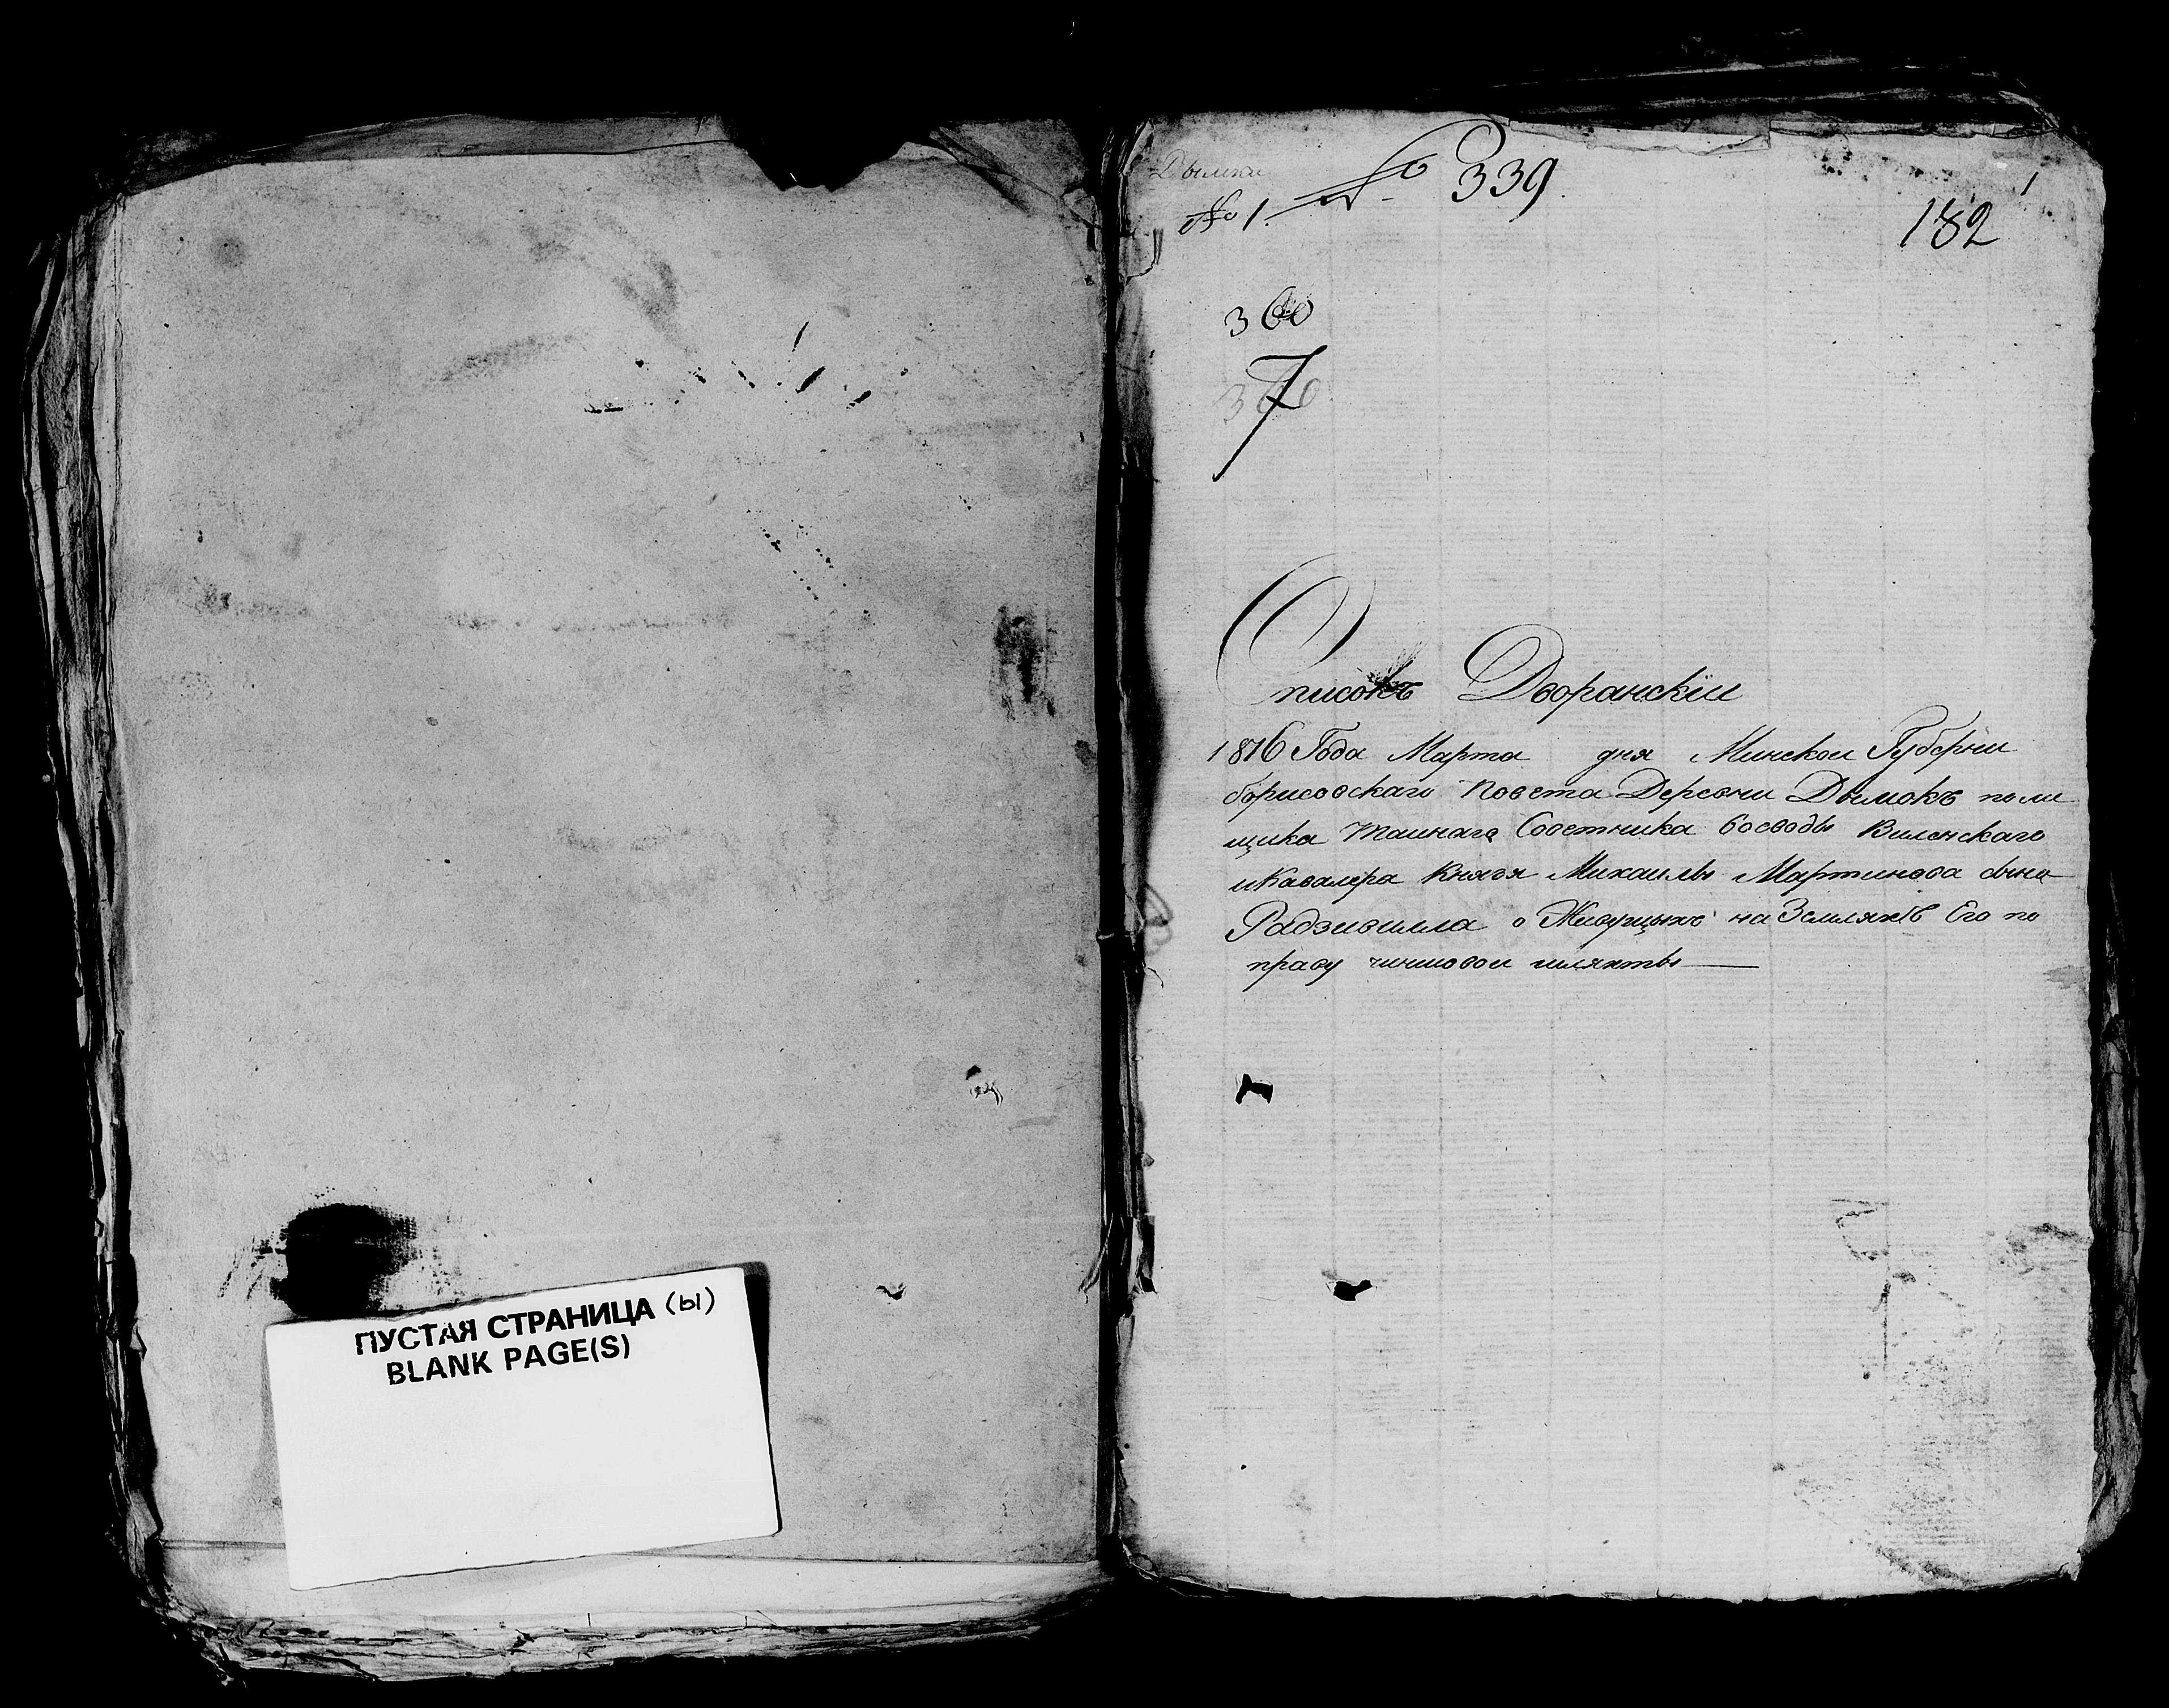 ПУСТАЯ СТРАНИЦА (ы)
BLANK PAGE(S)
Дымки
№ 1. № 339.
1
182
360
7
360
Списокъ Дворанскіи
1816 Года Марта дня Минскои Губерни
борисовскаго повета Деревни Дымокъ поми
щика таинаго Советника воеводы виленскаго
и Кавалера Князя Михаилы Мартинова сына
Радзивилла о Живущыхъ на Земляхъ Его по
праву чиншовои шляхты